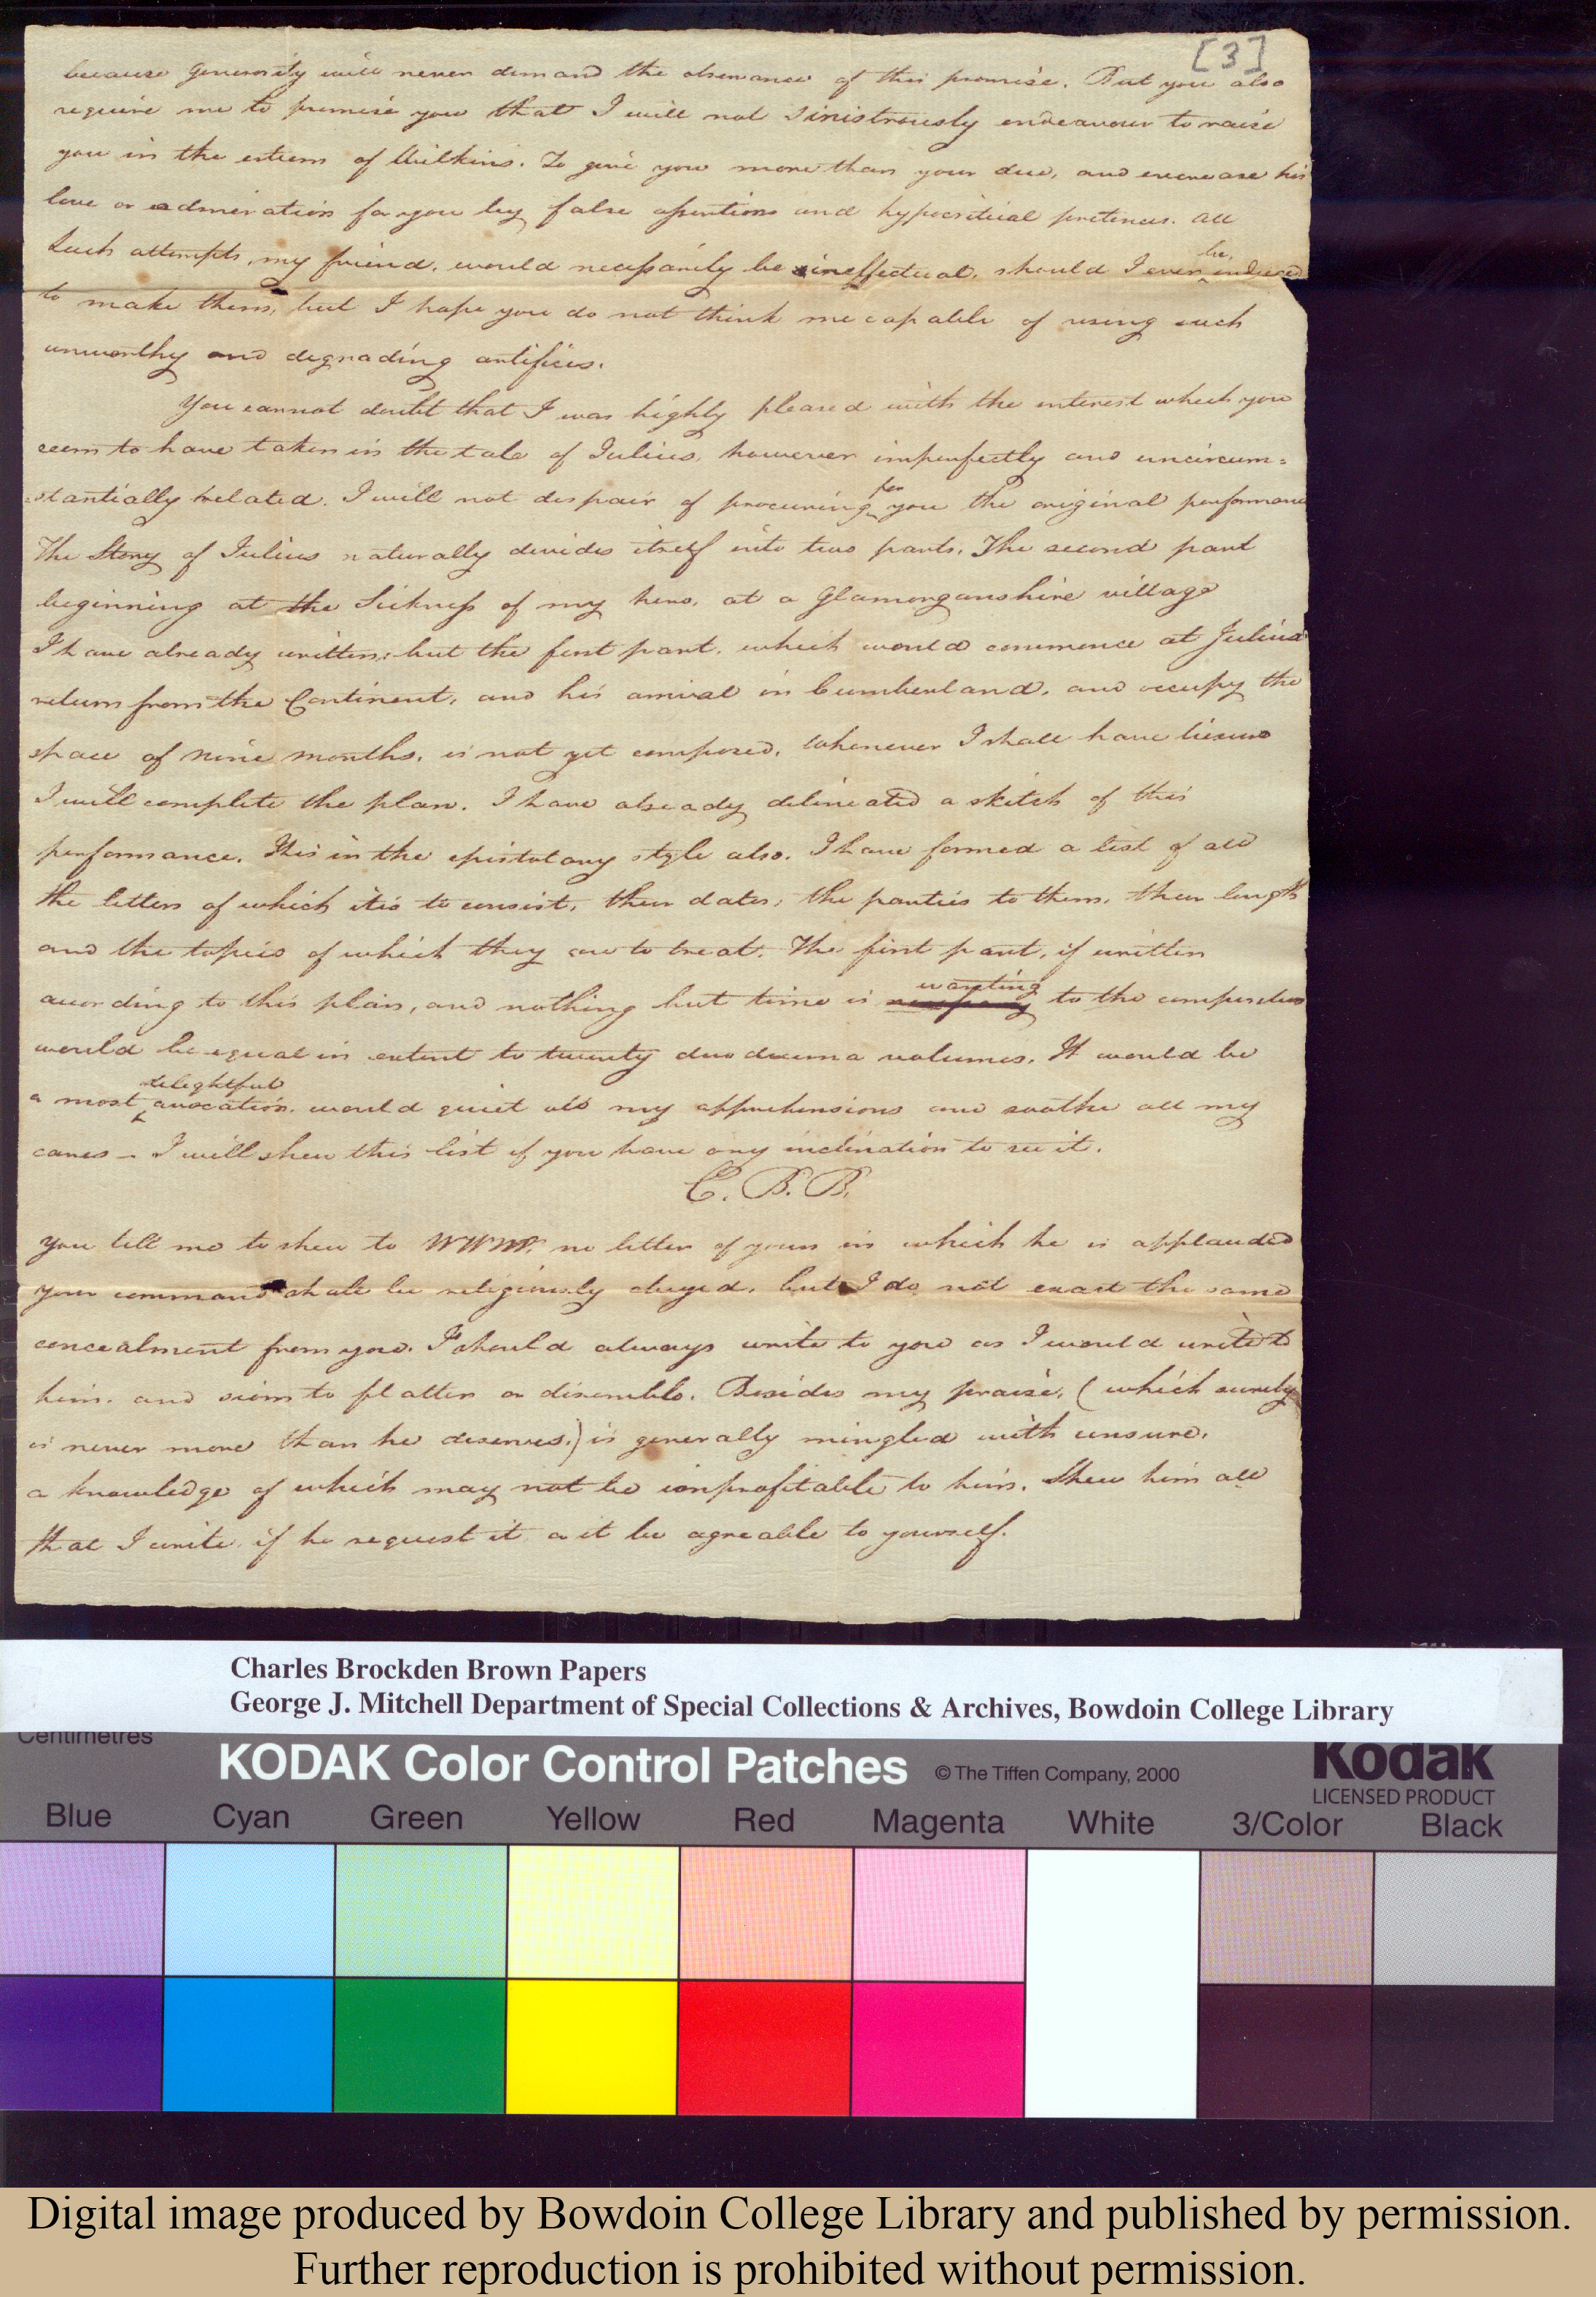 [3]
because generosity will never demand the observance of this promise. But you also
require me to promise you that I will not sinistrously endeavour to raise
you in the esteem of Wilkins. To give you more than your due, and encrease his
love or admiration for you by false assertions and hypocritical pretences. all
such attempts, my friend, would necessarily be ineffectual, should I ever be induced
to make them, but I hope you do not think me capable of using such
unworthy and degrading artifices.
You cannot doubt that I was highly pleased with the interest which you
seem to have taken in the tale of Julius, however imperfectly and uncircum=
stantially related. I will not despair of procuring for you the original performance
The Story of Julius naturally divides itself into two parts. The second part
beginning at the Sickness of my hero, at a Glamorganshire village
I have already written: but the first part, which would commence at Julius
return from the Continent, and his arrival in Cumberland, and occupy the
space of nine months, is not yet composed. Whenever I shall have liesure
I will complete the plan. I have already delineated a sketch of this
performance. Tis in the epistolary style also. I have formed a list of all
the letters of which it is to consist, their dates, the parties to them, their length
and the topics of which they are to treat. The first part, if written
according to this plan, and nothing but time is necessary wanting to the composition
would be equal in extent to twenty duodecimo volumes. It would be
a most delightful avocation. would quiet all my apprehensions and soothe all my
cares – I will shew this list if you have any inclination to see it.
C. B. B.
You tell me to shew to WWW. no letter of yours in which he is applauded
your command shall be religiously obeyed, but I do not exact the same
concealment from you. I should always write to you as I would write to
him. and scorn to flatter or dissemble. Besides my praise, (which surely
is never more than he deserves,) is generally mingled with censure,
a knowledge of which may not be unprofitable to him. Shew him all
that I write, if he request it or it be agreable to yourself.
Charles Brockden Brown Papers
George J. Mitchell Department of Special Collections & Archives, Bowdoin College Library
Centimetres
KODAK Color Control Patches © The Tiffen Company, 2000 Kodak
LICENSED PRODUCT
Blue Cyan Green Yellow Red Magenta White 3/Color Black
Digital image produced by Bowdoin College Library and published by permission.
Further reproduction is prohibited without permission.